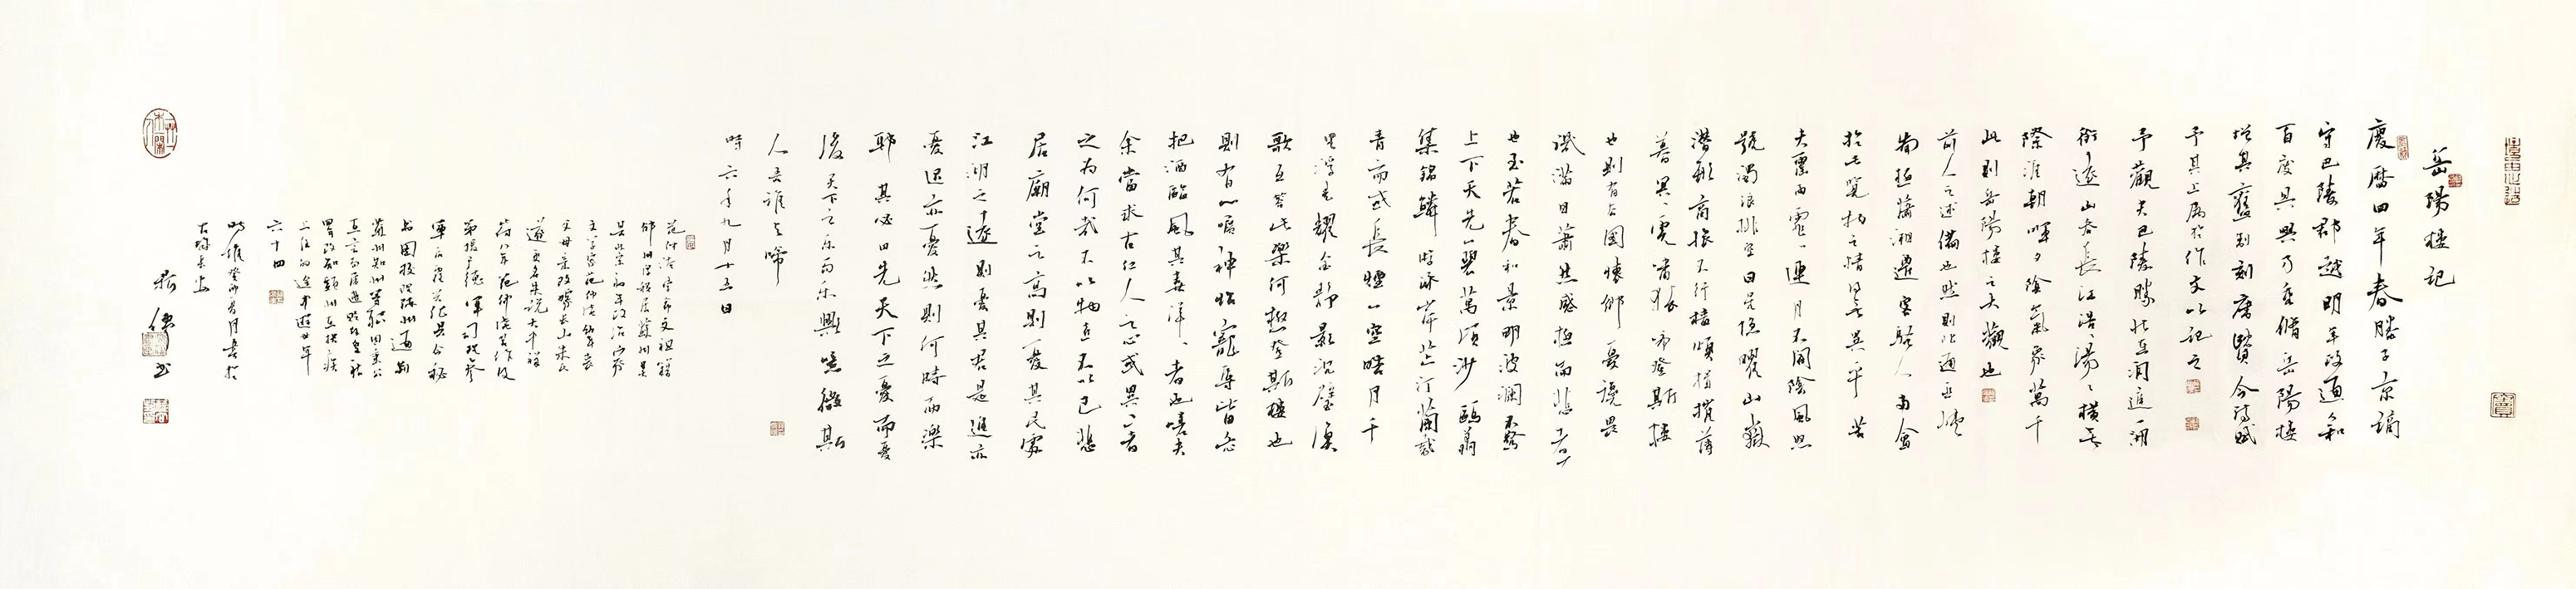 岳陽樓記
慶曆四年春滕子京謫
守巴陵郡越明年政通和
百廢具興乃重脩岳陽樓
增其舊制刻唐賢今詩賦
于其上屬於作文以記之
予觀夫巴陵勝狀在洞庭一湖
銜遠山吞長江浩浩湯湯橫無
際涯朝暉夕陰氣象萬千
此則岳陽樓之大觀也
前人之述備也然則北通巫峽
南極瀟湘遷客騷人多會
於此覽物之情得無異乎 若
夫霪雨霏霏連月不開陰風怒
號濁浪排空日星隱曜山嶽
潛形商旅不行檣傾楫摧薄
暮冥冥虎嘯猿啼登斯樓
也則有去國懷鄉憂讒畏
譏滿目蕭然感極而悲者
也至若春和景明波瀾不驚
上下天光一碧萬頃沙鷗翔
集錦鱗游泳岸芷汀蘭郁
青而或長煙一空皓月千
里浮光耀金靜影沉璧漁
歌互答此樂何極登斯樓也
則有心曠神怡寵辱皆忘
把酒臨風其喜洋洋者也嗟夫
余嘗求古仁人之心或異二者
之為何哉不以物喜不以己悲
居廟堂之高則憂其民處
江湖之遠則憂其君是進亦
憂退亦憂然則何時而樂
耶 其必曰先天下之憂而憂
後天下之乐而乐歟噫微斯
人吾誰與歸
時六年九月十五日
范仲淹字希文祖籍
邠州後移居蘇州吳
縣北宋初年政治家
文學家范仲淹幼年喪
父母親改嫁長山朱氏
遂更名朱說大中祥
符八年范仲淹苦讀及
第授廣德軍司理參
軍後歷任興化县令秘
閣校理陳州通判
蘇州知州等職
六十四